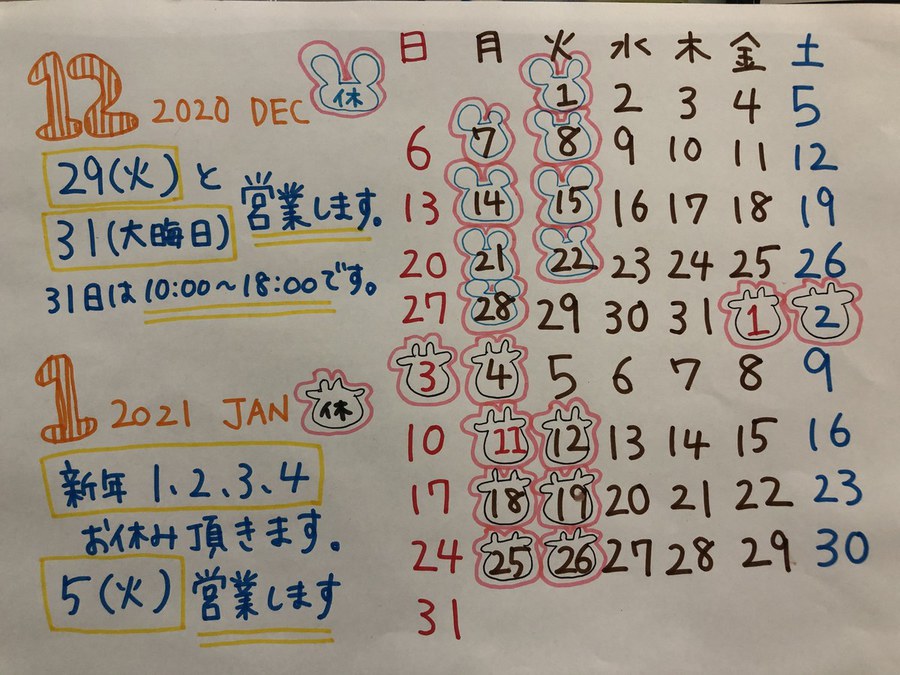 12 2020 DEC 休
29(火)と
31(大晦日) 営業します。
31日は10:00〜18:00です。
1 2021 JAN 休
新年 1、2、3、4
お休み頂きます。
5(火) 営業します
日 月 火 水 木 金 土
1 2 3 4 5
6 7 8 9 10 11 12
13 14 15 16 17 18 19
20 21 22 23 24 25 26
27 28 29 30 31 1 2
3 4 5 6 7 8 9
10 11 12 13 14 15 16
17 18 19 20 21 22 23
24 25 26 27 28 29 30
31